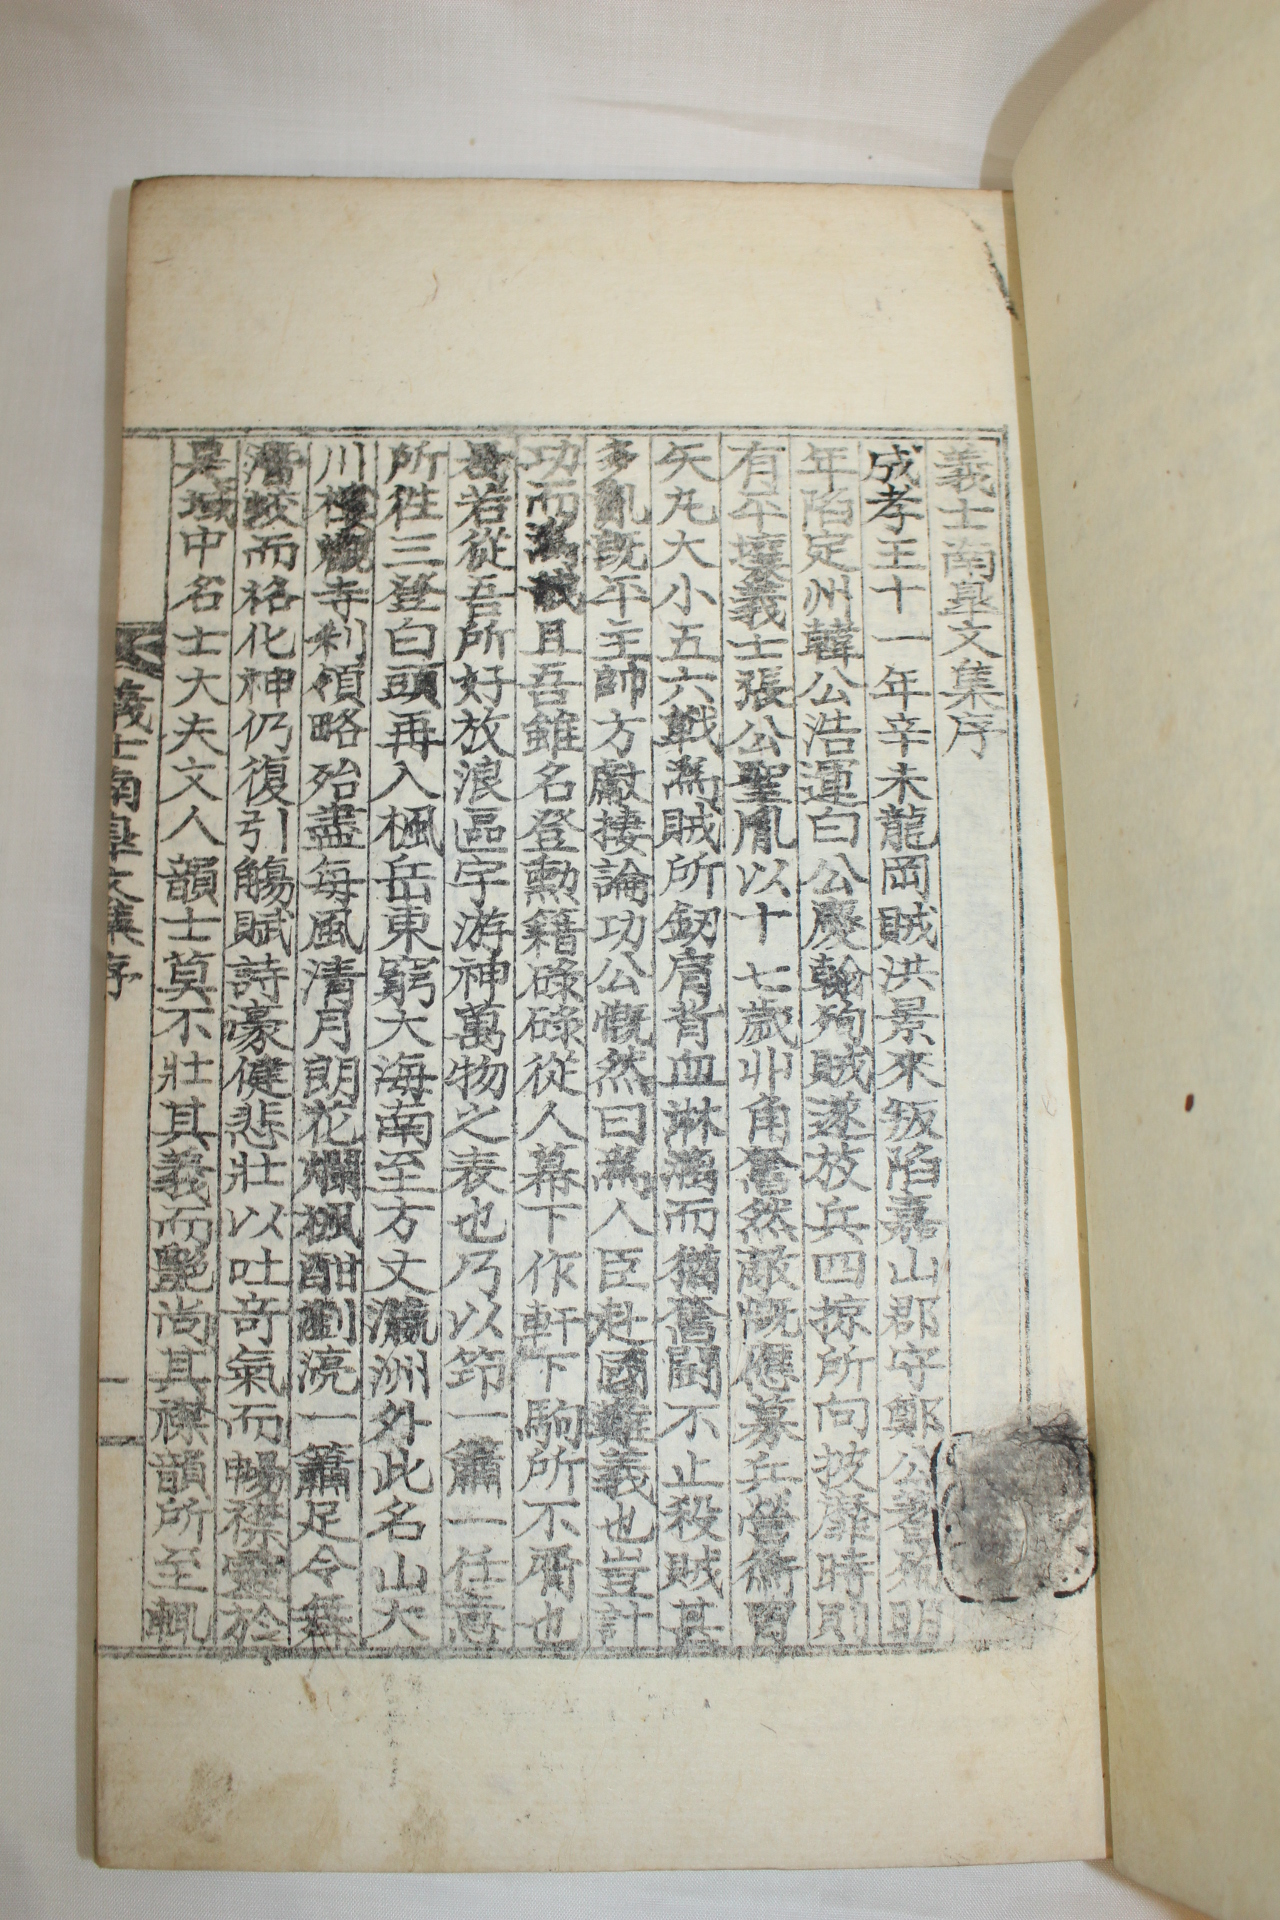 義士南皐文集序
成孝王十一年辛未龍岡賊洪景來叛陷嘉山郡守鄭公蓍死明
年陷定州韓公浩運白公慶翰殉賊遂放兵四掠所向披靡時則
有平壤義士張公聖胤以十七歲丱角奮然敵愾應募兵營衝冒
矢丸大小五六戰爲賊所劒肩背血淋漓而猶奮鬪不止殺賊甚
多亂旣平主帥方嚴捿論功公慨然曰爲人臣赴國難義也豈計
功而爲哉且吾雖名登勳籍碌碌從人幕下作軒下駒所不屑也
若從吾所好放浪區宇游神萬物之表也乃以節一簫一任意
所徃三登白頭再入楓岳東窮大海南至方丈瀛洲外此名山大
川樓觀寺刹領略殆盡每風清月朗花爛楓酣劉浣一簫足令舞
潛蛟而格化神仍復引觴賦詩豪健悲壯以吐奇氣而暢襟靈於
是域中名士大夫文人韻士莫不壯其義而艶尚其襟韻所至輒
義士南皐文集序
一